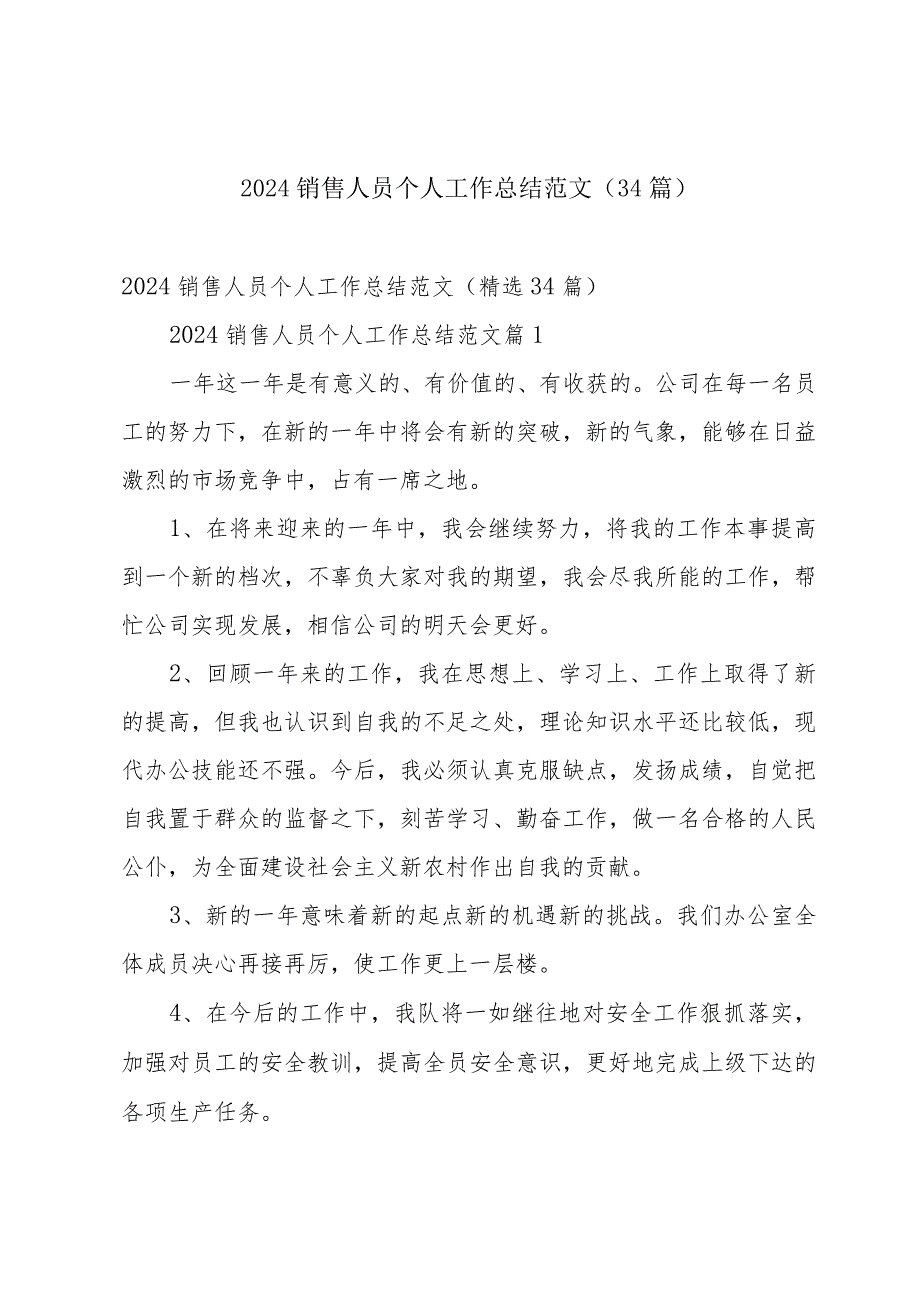 2024销售人员个人工作总结范文（34篇）
2024销售人员个人工作总结范文（精选34篇）
2024销售人员个人工作总结范文篇1
一年这一年是有意义的、有价值的、有收获的。公司在每一名员
工的努力下，在新的一年中将会有新的突破，新的气象，能够在日益
激烈的市场竞争中，占有一席之地。
1、在将来迎来的一年中，我会继续努力，将我的工作本事提高
到一个新的档次，不辜负大家对我的期望，我会尽我所能的工作，帮
忙公司实现发展，相信公司的明天会更好。
2、回顾一年来的工作，我在思想上、学习上、工作上取得了新
的提高，但我也认识到自我的不足之处，理论知识水平还比较低，现
代办公技能还不强。今后，我必须认真克服缺点，发扬成绩，自觉把
自我置于群众的监督之下，刻苦学习、勤奋工作，做一名合格的人民
公仆，为全面建设社会主义新农村作出自我的贡献。
3、新的一年意味着新的起点新的机遇新的挑战。我们办公室全
体成员决心再接再厉，使工作更上一层楼。
4、在今后的工作中，我队将一如继往地对安全工作狠抓落实，
加强对员工的安全教训，提高全员安全意识，更好地完成上级下达的
各项生产任务。